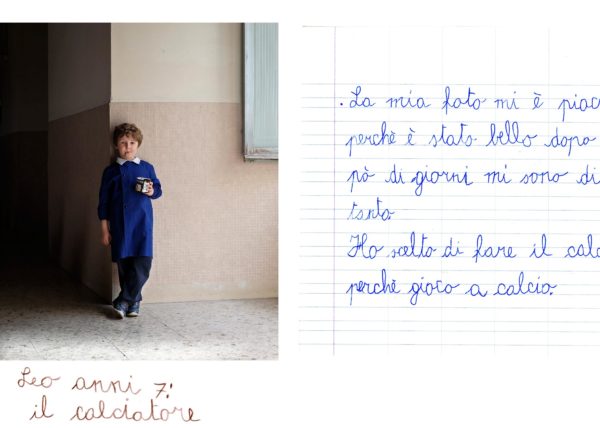 . La mia foto mi è piac
perchè è stato bello dopo
pò di giorni mi sono di
tanto.
Ho scelto di fare il calc
perchè gioco a calcio.
Leo anni 7:
il calciatore